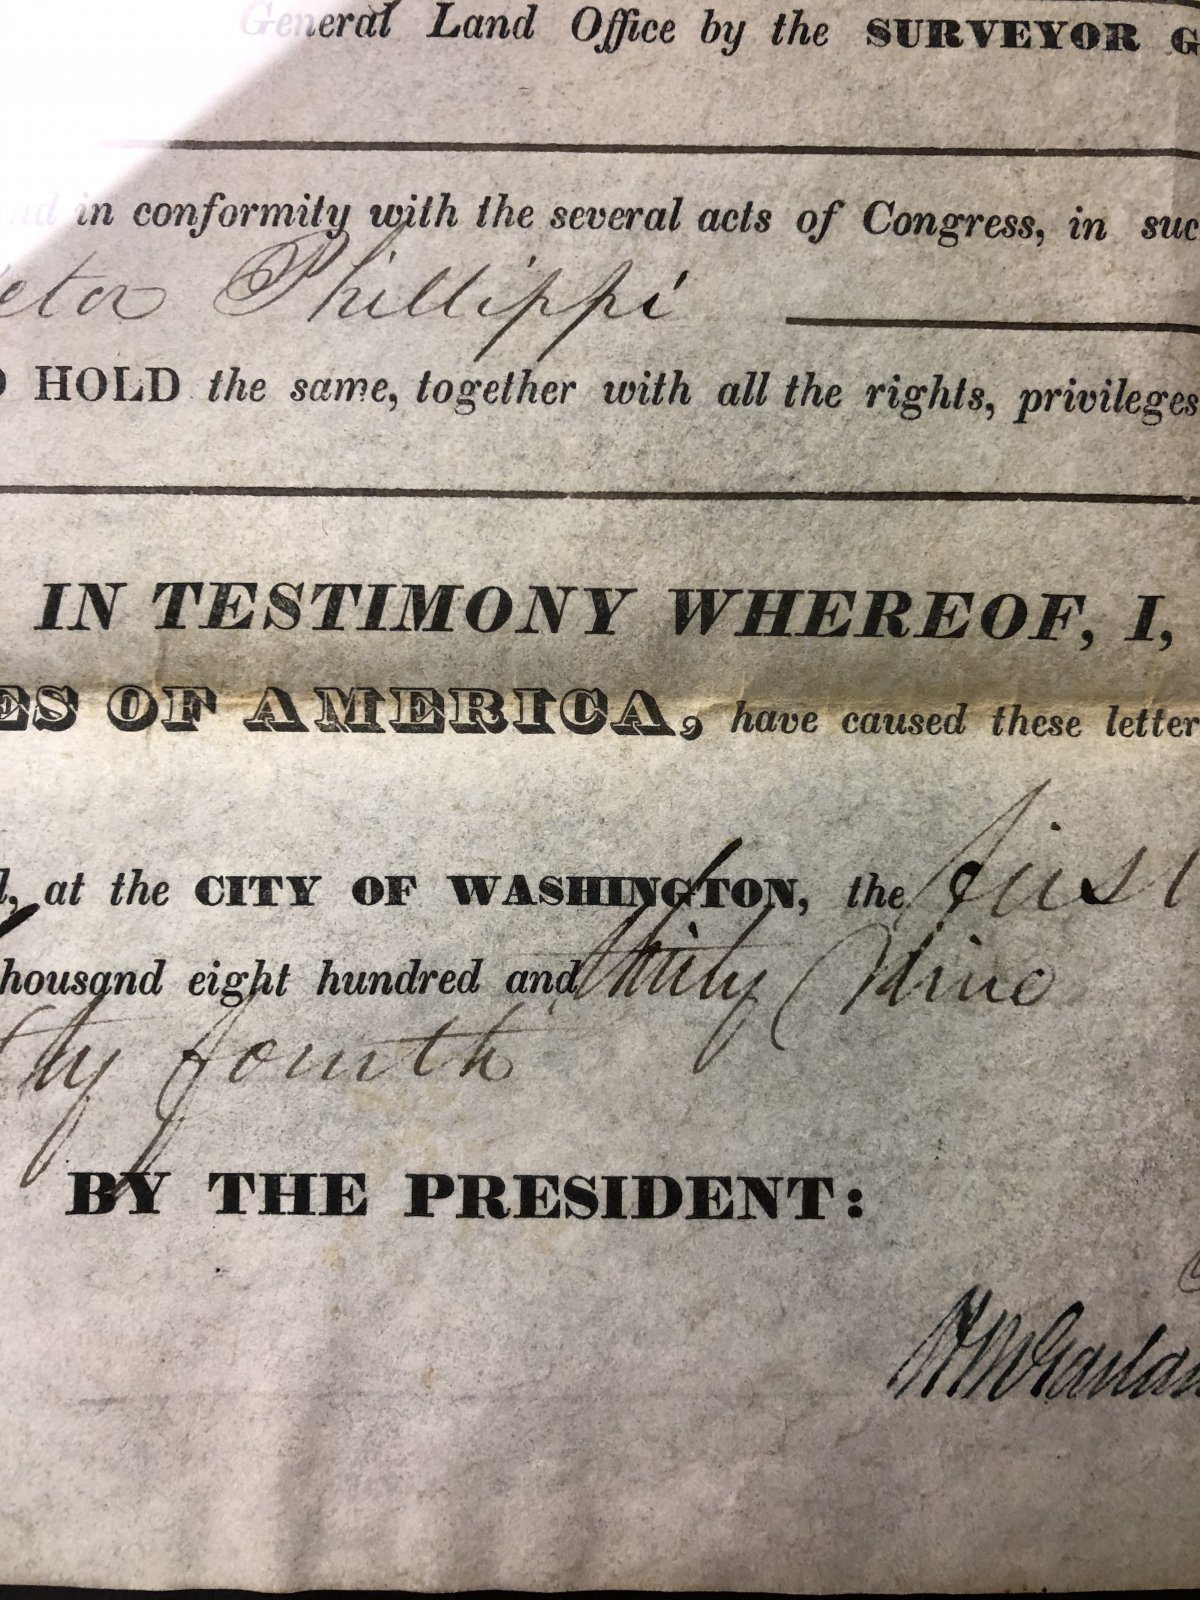 General Land Office by the SURVEYOR G
nd in conformity with the several acts of Congress, in suc
etor Phillippi
O HOLD the same, together with all the rights, privileges
IN TESTIMONY WHEREOF, I,
ES OF AMERICA, have caused these letter
l, at the CITY OF WASHINGTON, the first
housand eight hundred and thirty Nine
ty fourth
BY THE PRESIDENT: